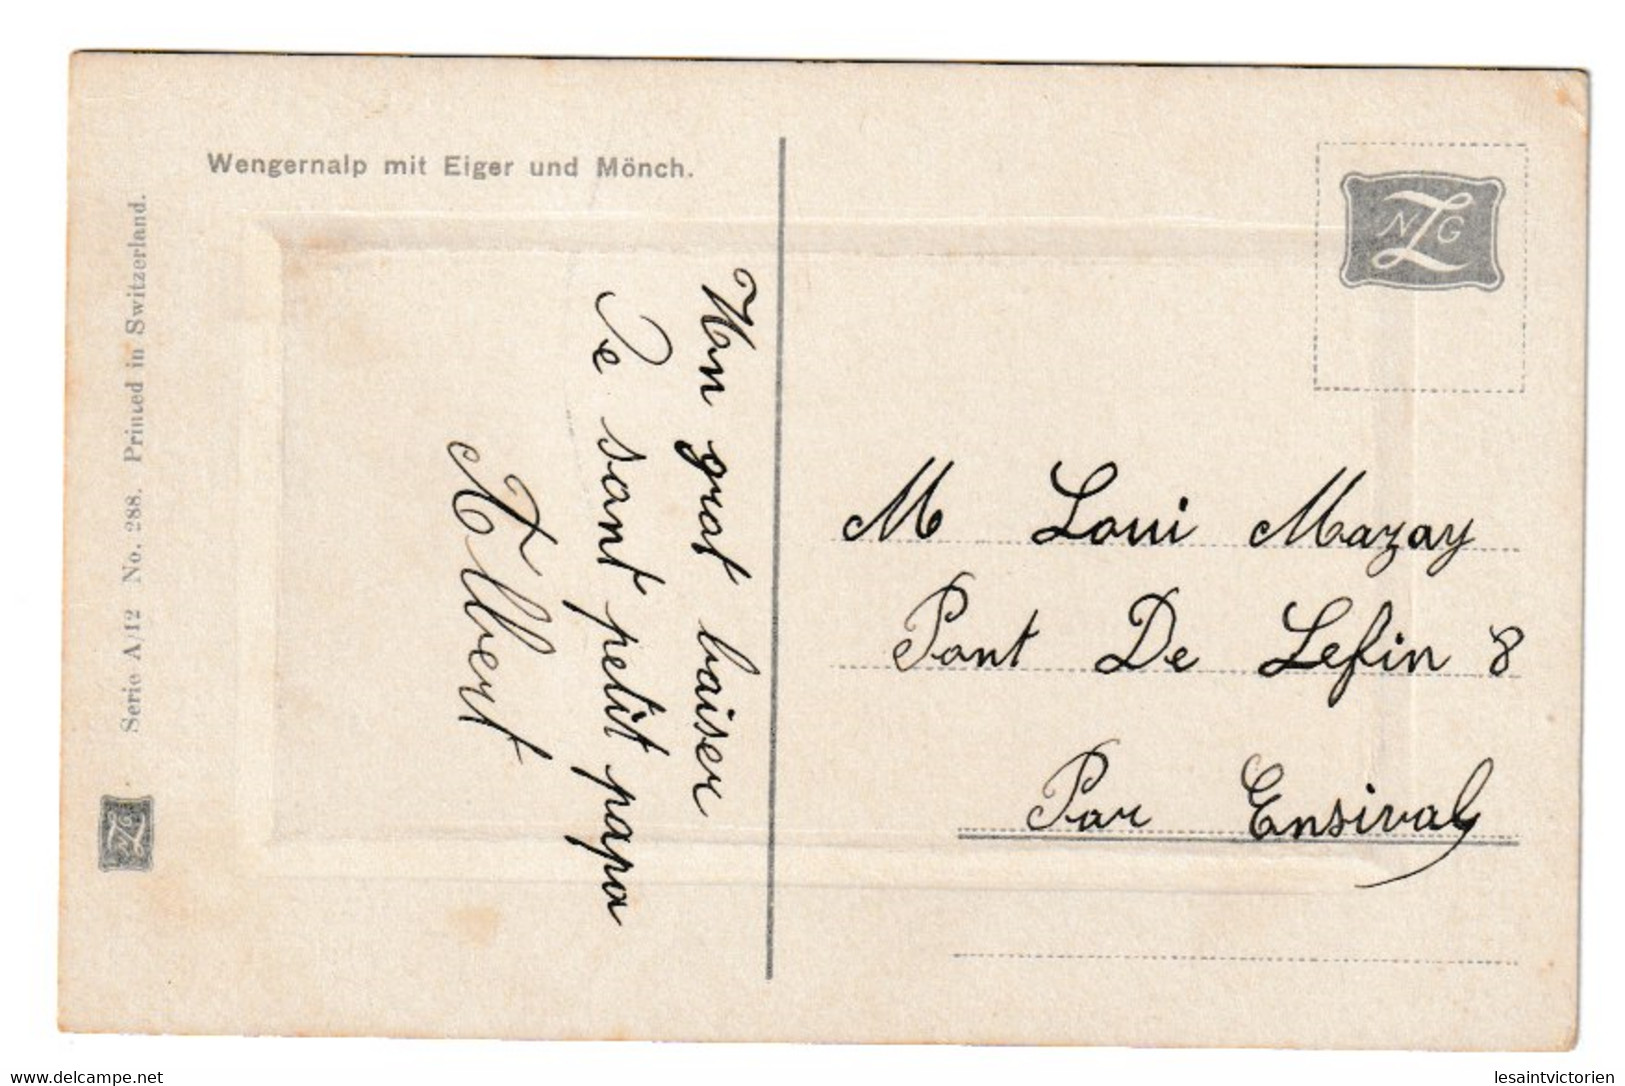 Wengernalp mit Eiger und Mönch.
Serie A/12 No. 288. Printed in Switzerland.
NZG
NZG
Hon grat baiser
De sant petit papa
Albert
M Loui Mazay
Pont De Lefin 8
Par Ensival
delcampe.net
lesaintvictorien